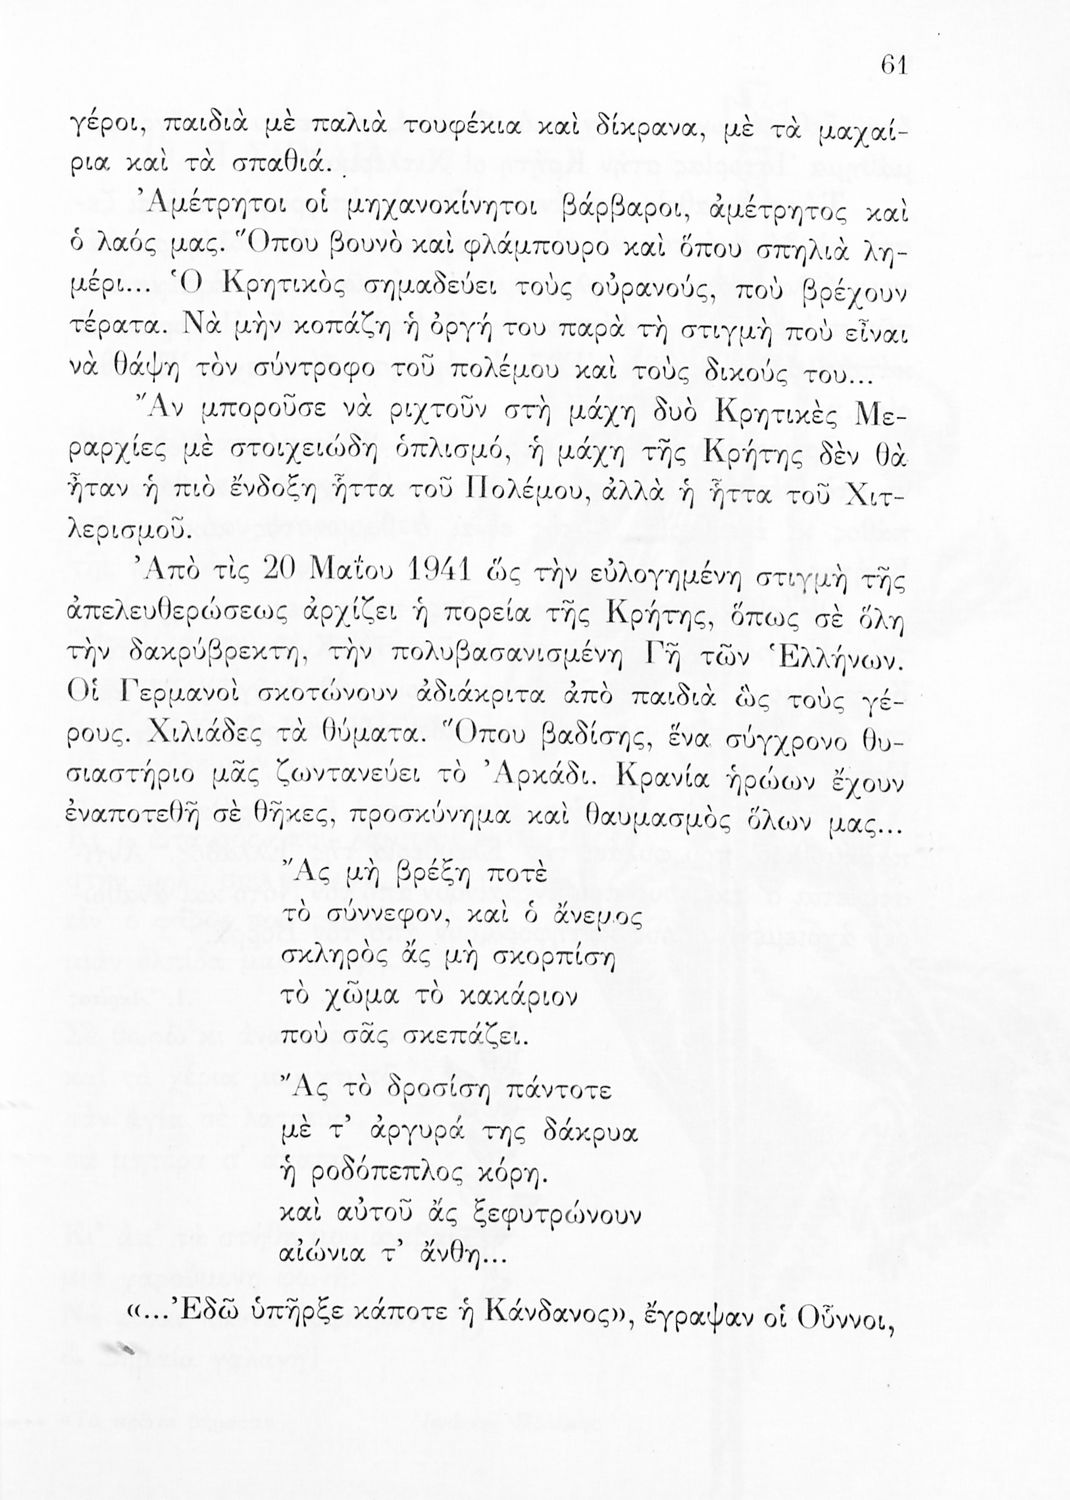 61
γέροι, παιδιὰ μὲ παλιὰ τουφέκια καὶ δίκρανα, μὲ τὰ μαχαί-
ρια καὶ τὰ σπαθιά.
Ἀμέτρητοι οἱ μηχανοκίνητοι βάρβαροι, ἀμέτρητος καὶ
ὁ λαός μας. Ὅπου βουνὸ καὶ φλάμπουρο καὶ ὅπου σπηλιὰ λη-
μέρι... Ὁ Κρητικὸς σημαδεύει τοὺς οὐρανούς, ποὺ βρέχουν
τέρατα. Νὰ μὴν κοπάζη ἡ ὀργή του παρὰ τὴ στιγμὴ ποὺ εἶναι
νὰ θάψη τὸν σύντροφο τοῦ πολέμου καὶ τοὺς δικούς του...
Ἂν μποροῦσε νὰ ριχτοῦν στὴ μάχη δυὸ Κρητικὲς Με-
ραρχίες μὲ στοιχειώδη ὁπλισμό, ἡ μάχη τῆς Κρήτης δὲν θὰ
ἦταν ἡ πιὸ ἔνδοξη ἥττα τοῦ Πολέμου, ἀλλὰ ἡ ἥττα τοῦ Χιτ-
λερισμοῦ.
Ἀπὸ τὶς 20 Μαΐου 1941 ὥς τὴν εὐλογημένη στιγμὴ τῆς
ἀπελευθερώσεως ἀρχίζει ἡ πορεία τῆς Κρήτης, ὅπως σὲ ὅλη
τὴν δακρύβρεκτη, τὴν πολυβασανισμένη Γῆ τῶν Ἑλλήνων.
Οἱ Γερμανοὶ σκοτώνουν ἀδιάκριτα ἀπὸ παιδιὰ ὣς τοὺς γέ-
ρους. Χιλιάδες τὰ θύματα. Ὅπου βαδίσης, ἕνα σύγχρονο θυ-
σιαστήριο μᾶς ζωντανεύει τὸ Ἀρκάδι. Κρανία ἡρώων ἔχουν
ἐναποτεθῆ σὲ θῆκες, προσκύνημα καὶ θαυμασμὸς ὅλων μας...
Ἂς μὴ βρέξη ποτὲ
τὸ σύννεφον, καὶ ὁ ἄνεμος
σκληρὸς ἄς μὴ σκορπίση
τὸ χῶμα τὸ κακάριον
ποὺ σᾶς σκεπάζει.
Ἂς τὸ δροσίση πάντοτε
μὲ τ' ἀργυρά της δάκρυα
ἡ ροδόπεπλος κόρη.
καὶ αὐτοῦ ἄς ξεφυτρώνουν
αἰώνια τ' ἄνθη...
«...Ἐδῶ ὑπῆρξε κάποτε ἡ Κάνδανος», ἔγραψαν οἱ Οὗννοι,